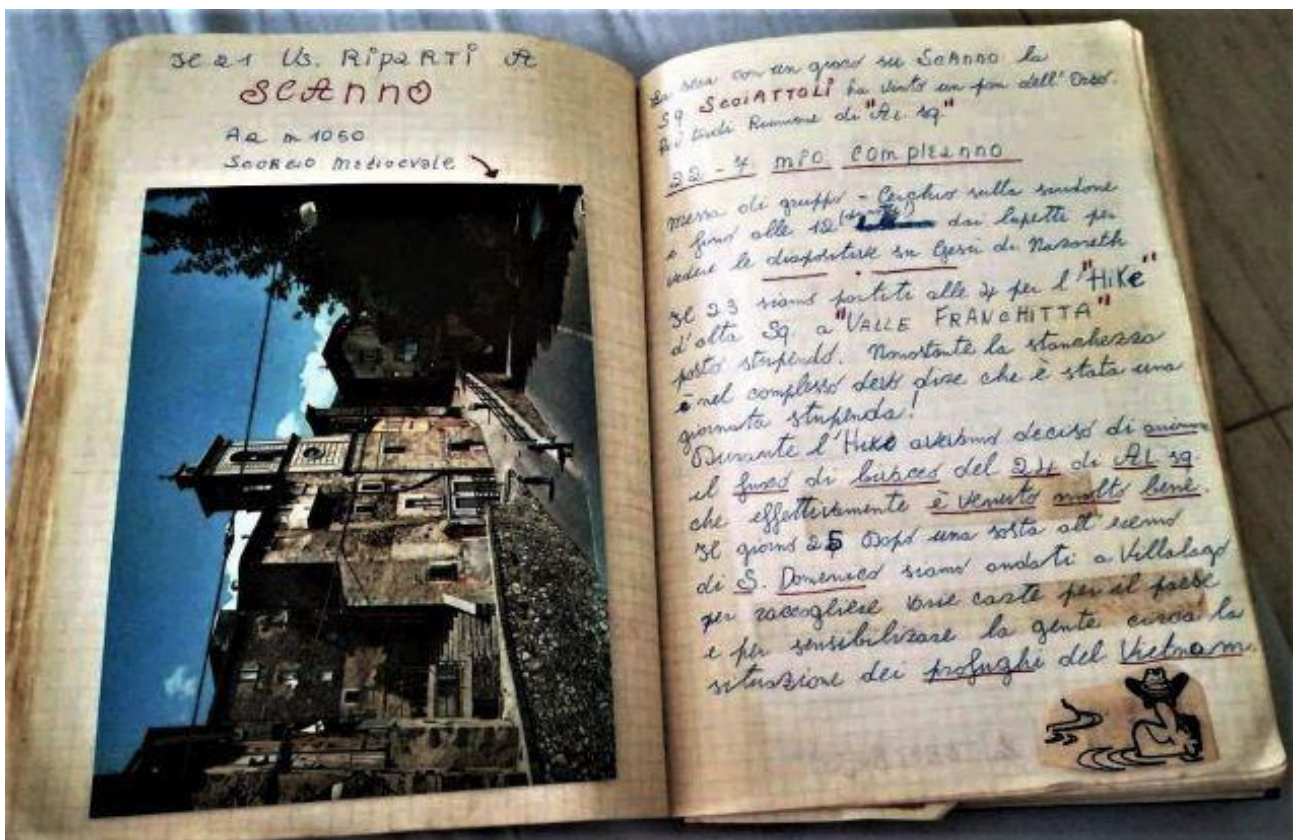 Il 21 Us. RiPARTi A
SCAnnO
AQ m 1050
SCORCIO mediOevale
La sera con un gioco su SCAnnO la
sq SCOiATTOLi ha vinto un pon dell'Orso.
Più tardi Riunione di "AL. sq"
22 - 7 miO COmPLEAnnO
messa di gruppo - Cerchio sulla sindone
e fino alle 12 dai lupetti per
vedere le diapositive su Gesù di Nazareth
Il 23 siamo partiti alle 4 per l'"HiKe"
d'alta Sq. a "VALLE FRANCHITTA"
posto stupendo. Nonostante la stanchezza
è nel complesso devo dire che è stata una
giornata stupenda!
Durante l'HiKe avevamo deciso di
il fuoco di bivacco del 24 di AL sq
che effettivamente è venuto molto bene.
Il giorno 25 Dopo una sosta all'eremo
di S. Domenico siamo andati a Villalago
per raccogliere varie carte per il paese
e per sensibilizare la gente circa la
situazione dei profughi del Vietnam.